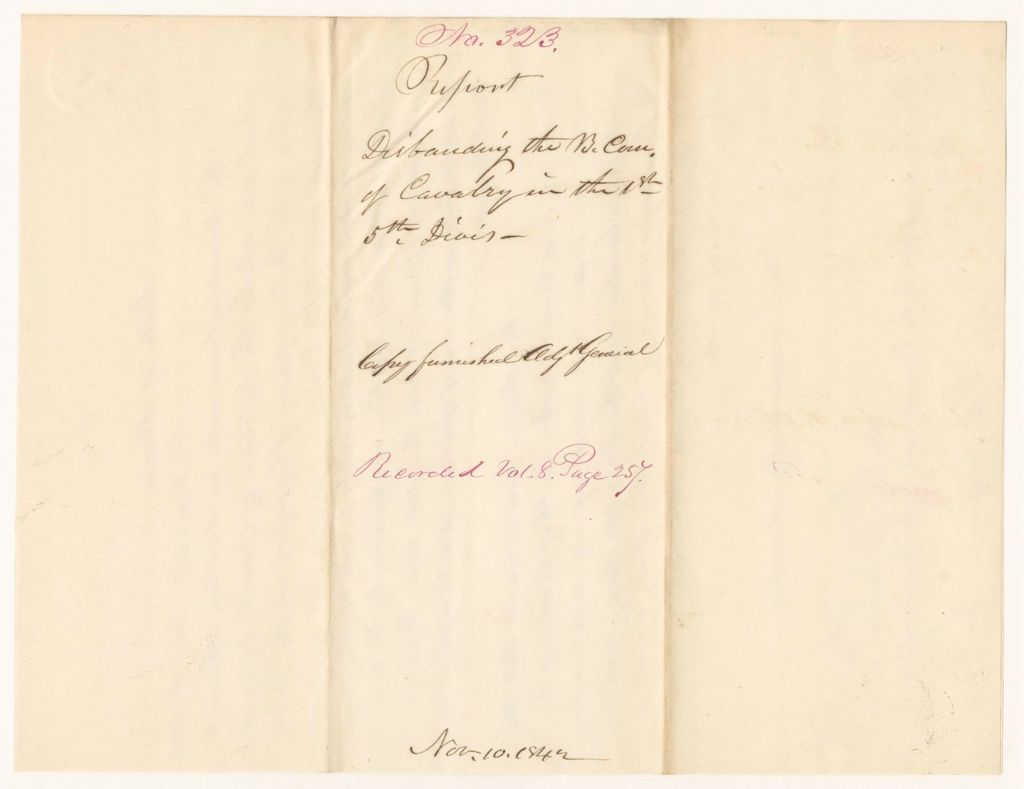 No. 323.
Report
Disbanding the B. Com.
of Cavalry in the 1st
5th Divis—
Copy furnished Adjt General
Recorded Vol. 8. Page 257.
Nov. 10. 1842